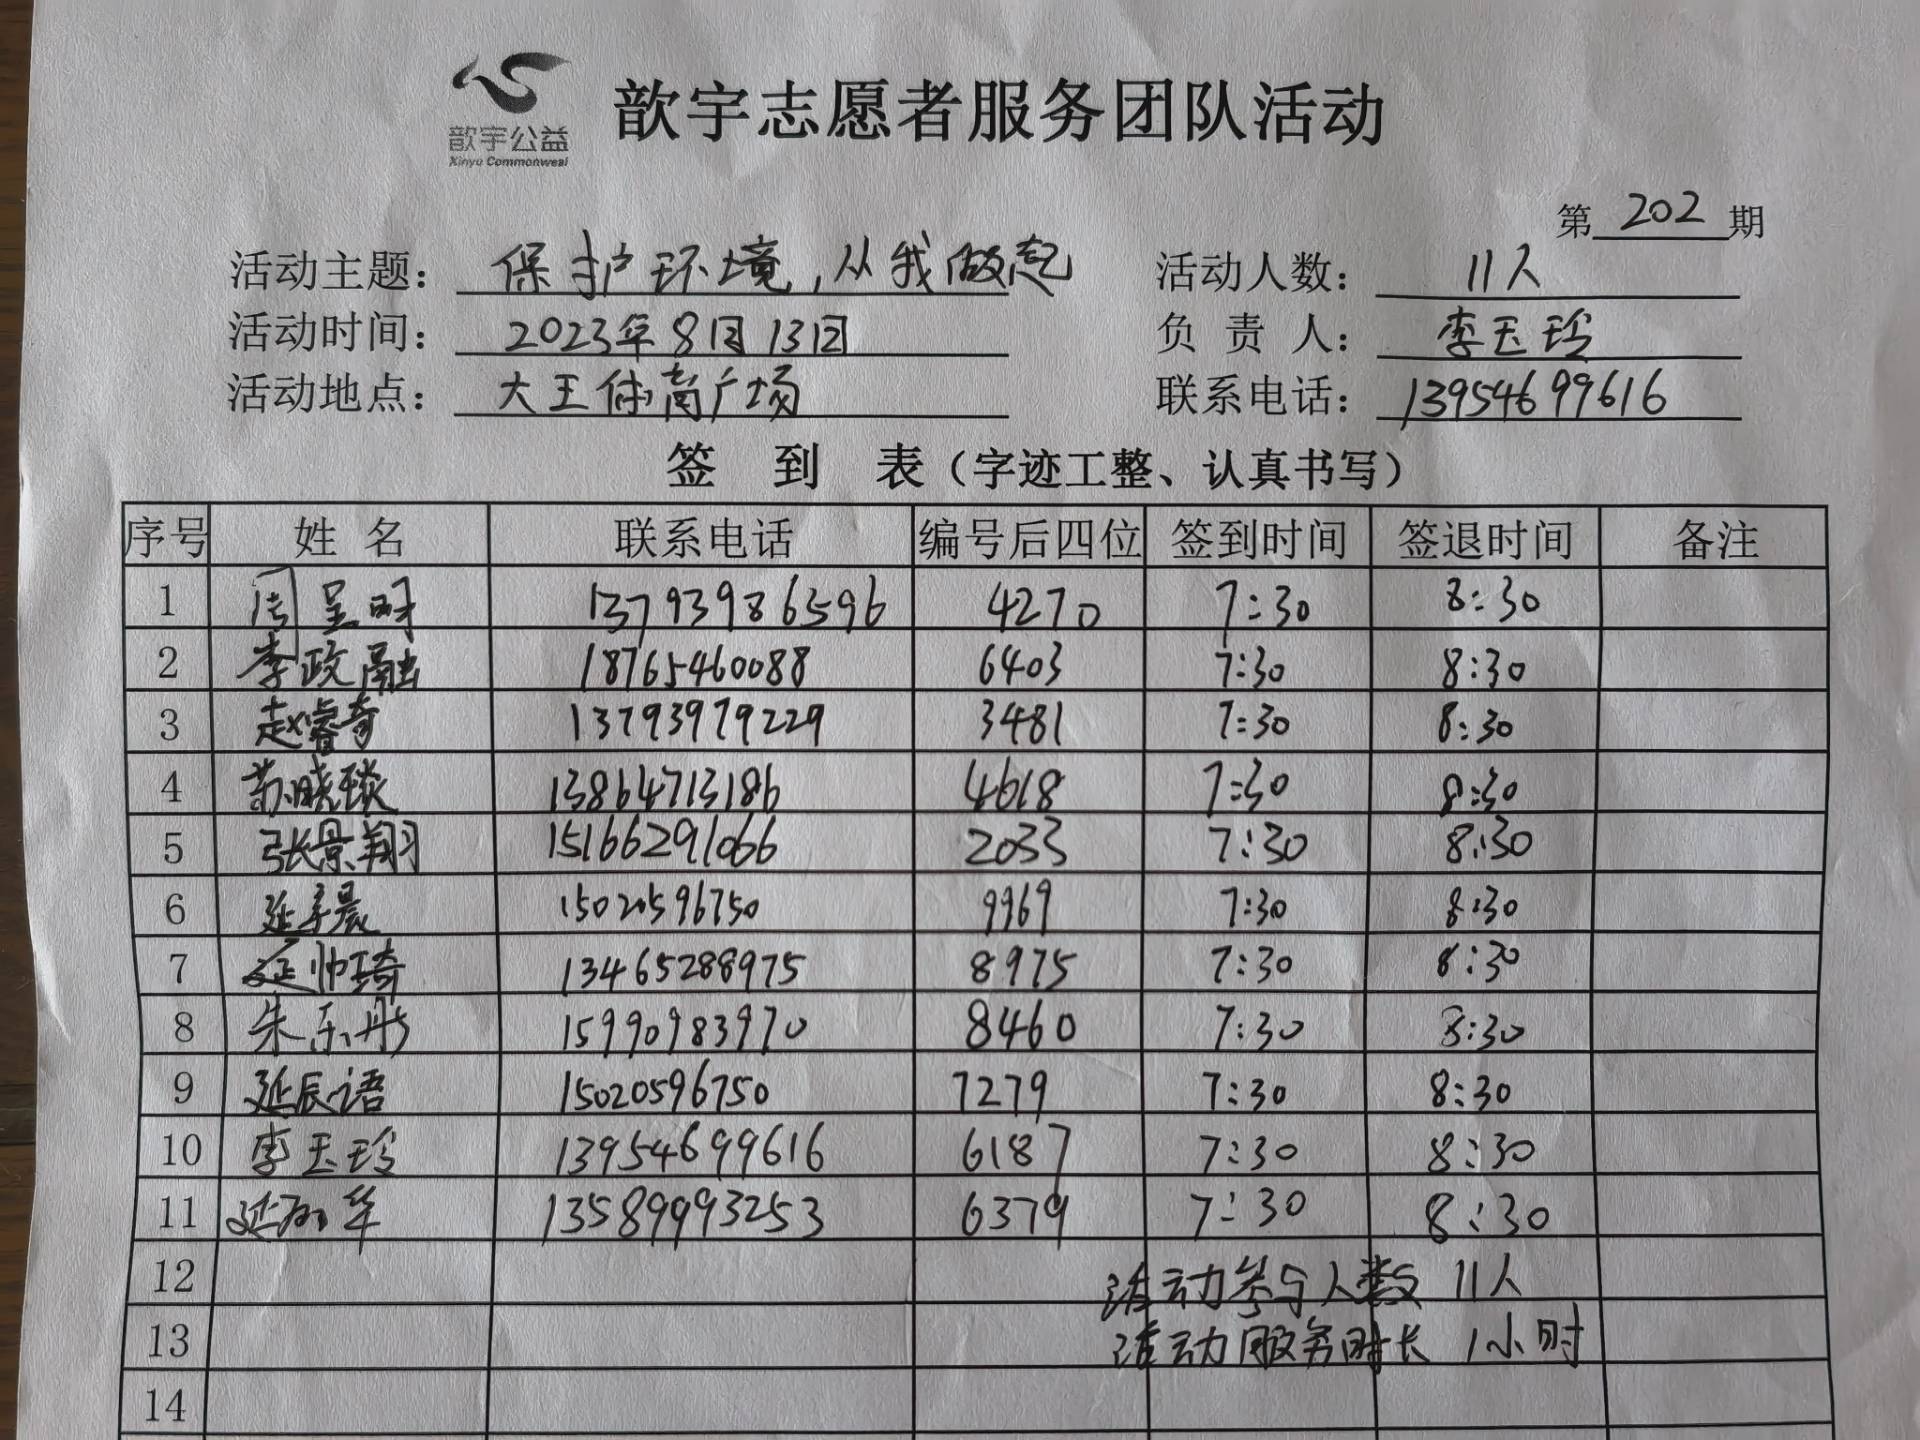 歆宇公益
Xinyu Commonweal
歆宇志愿者服务团队活动
第 202 期
活动主题： 保护环境，从我做起 活动人数： 11人
活动时间： 2023年8月13日 负责人： 李玉玲
活动地点： 大王体育广场 联系电话： 13954699616
签到表（字迹工整、认真书写）
序号 姓名 联系电话 编号后四位 签到时间 签退时间 备注
1 周呈明 13793986596 4270 7:30 8:30
2 李政融 18765460088 6403 7:30 8:30
3 赵睿奇 13793979229 3481 7:30 8:30
4 苏晓琰 13864713186 4618 7:30 8:30
5 张景翔 15166291066 2033 7:30 8:30
6 延宇晨 15020596750 9969 7:30 8:30
7 延帅琦 13465288975 8975 7:30 8:30
8 朱乐彤 15990983970 8460 7:30 8:30
9 延辰语 15020596750 7279 7:30 8:30
10 李玉玲 13954699616 6187 7:30 8:30
11 延 华 13589993253 6379 7:30 8:30
12 活动参与人数 11人
13 活动服务时长 1小时
14